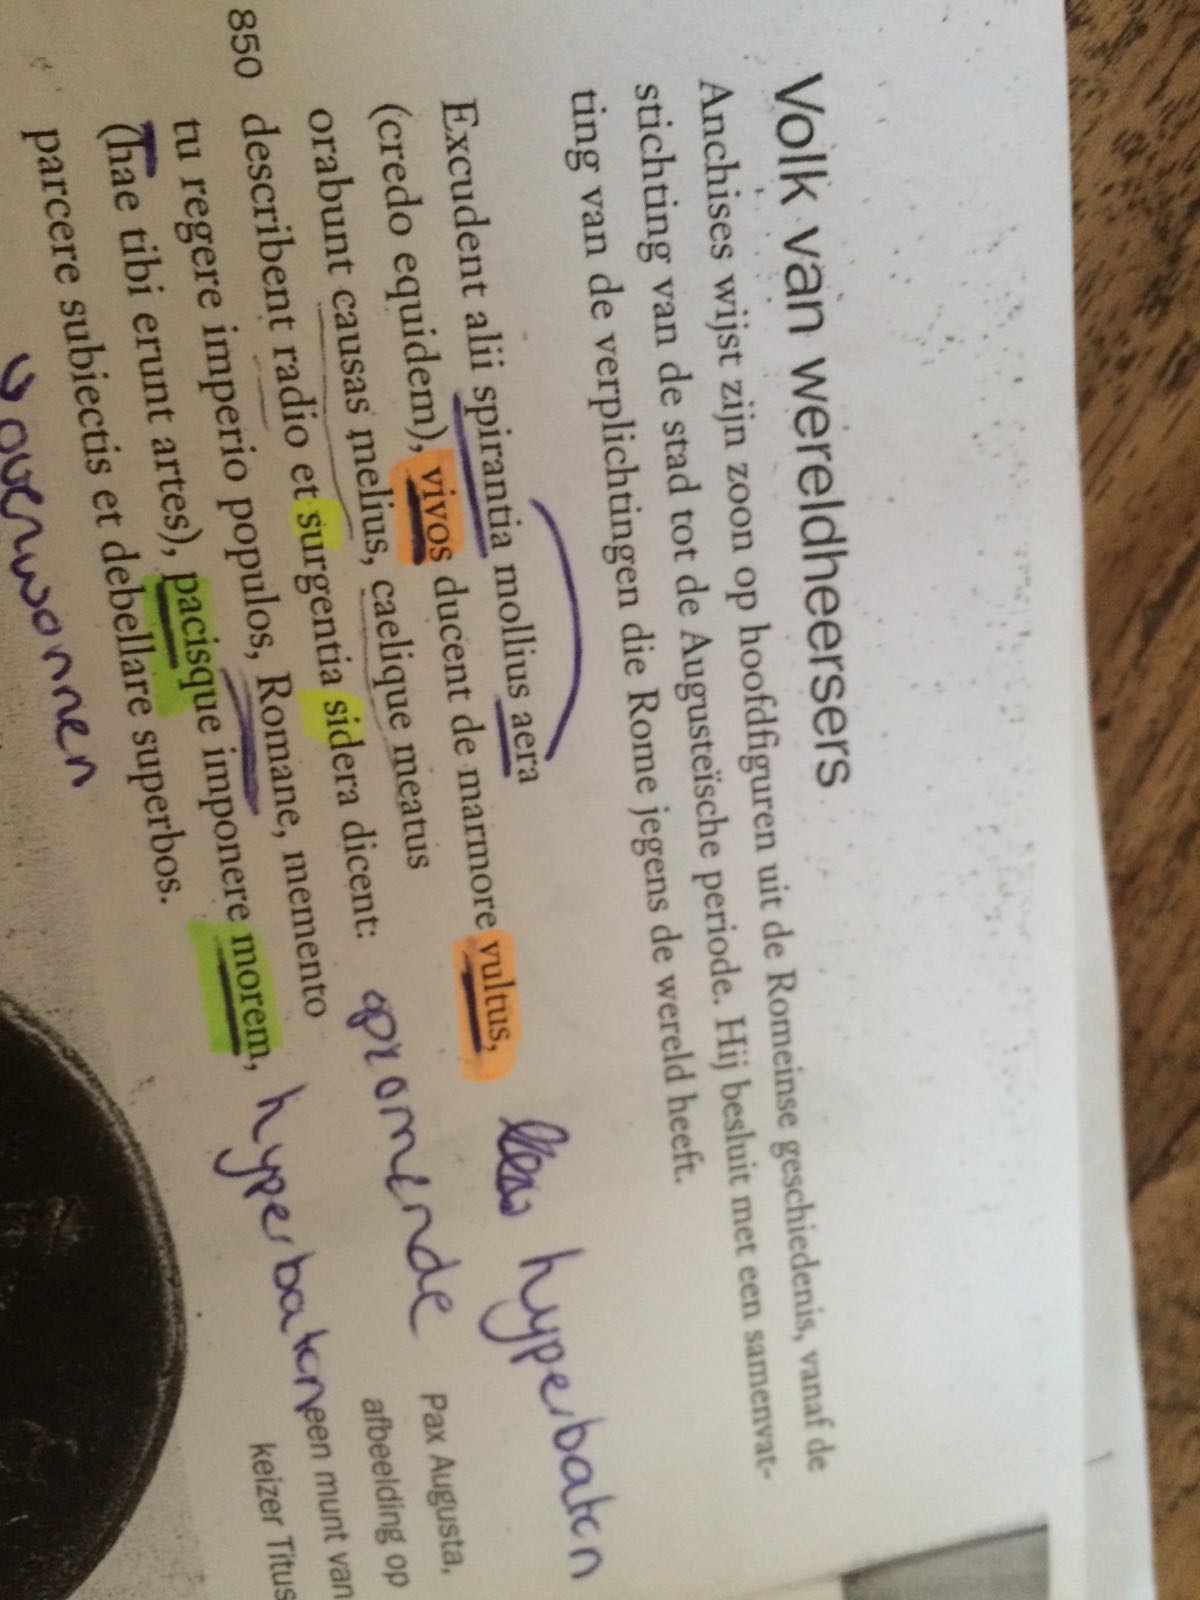 Volk van wereldheersers
Anchises wijst zijn zoon op hoofdfiguren uit de Romeinse geschiedenis, vanaf de
stichting van de stad tot de Augusteïsche periode. Hij besluit met een samenvat-
ting van de verplichtingen die Rome jegens de wereld heeft.
Excudent alii spirantia mollius aera
(credo equidem), vivos ducent de marmore vultus, hyperbaton
orabunt causas melius, caelique meatus
850 describent radio et surgentia sidera dicent: opromende
tu regere imperio populos, Romane, memento
(hae tibi erunt artes), pacisque imponere morem, hyperbaton
parcere subiectis et debellare superbos.
overwonnen
Pax Augusta,
afbeelding op
een munt van
keizer Titus